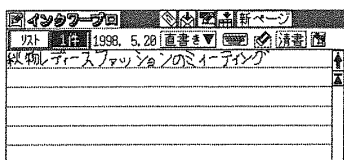 インクワープロ 新ページ
リスト 1件 1998. 5.20 直書き▼ 清書
秋物レディースファッションのミィーティング